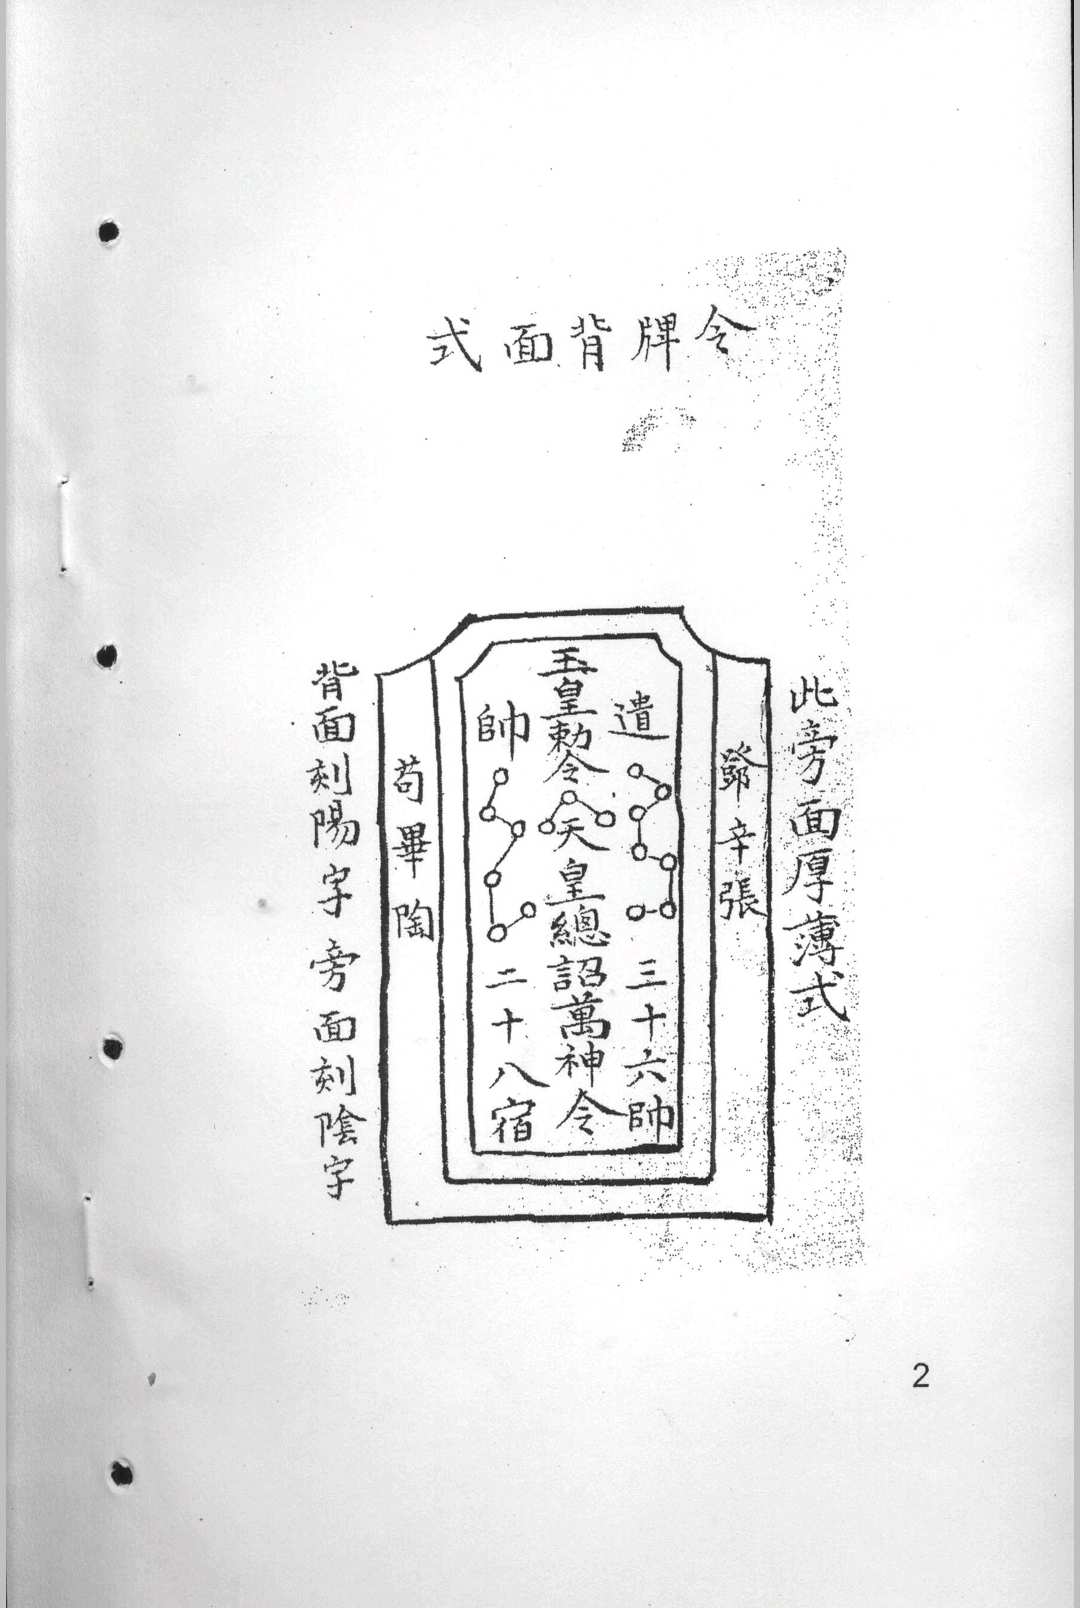 令牌背面式
此旁面厚薄式
鄧辛張
遣
三十六帥
玉皇勅令
天皇總詔萬神令
帥
二十八宿
苟畢陶
背面刻陽字旁面刻陰字
2